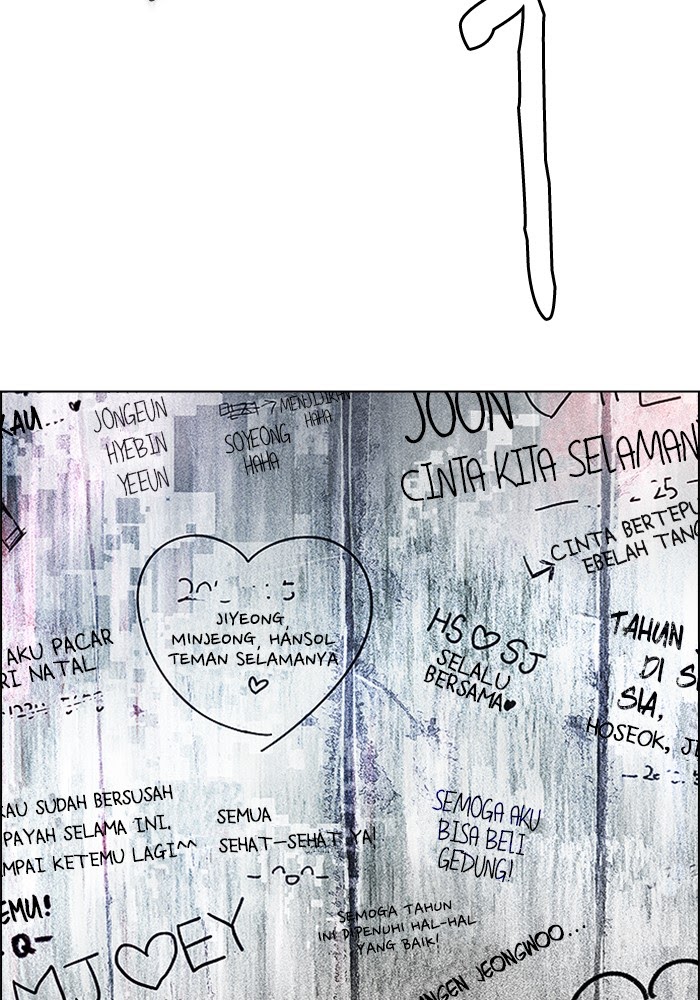 KAU...
JONGEUN
HYEBIN
YEEUN
MENJIJIKAN
HAHA
SOYEONG
HAHA
JOON
CINTA KITA SELAMAN
25
CINTA BERTEPU
EBELAH TANG
JIYEONG,
MINJEONG, HANSOL
TEMAN SELAMANYA
♡
HS ♡ SJ
SELALU
BERSAMA♥
AKU PACAR
RI NATAL
TAHUN
DI S
SIA,
HOSEOK, J
KAU SUDAH BERSUSAH
PAYAH SELAMA INI.
MPAI KETEMU LAGI^^
SEMUA
SEHAT-SEHAT YA!
SEMOGA AKU
BISA BELI
GEDUNG!
EMU!
-Q-
MJ♡EY
SEMOGA TAHUN
INI DIPENUHI HAL-HAL
YANG BAIK!
NGEN JEONGWOO...